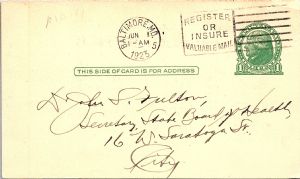 BALTIMORE, MD.
JUN
1 - AM
1925
REGISTER
OR
INSURE
VALUABLE MAIL
THIS SIDE OF CARD IS FOR ADDRESS
Dr John S. Fulton,
Secretary State Board of Health
16 W. Saratoga St.
City